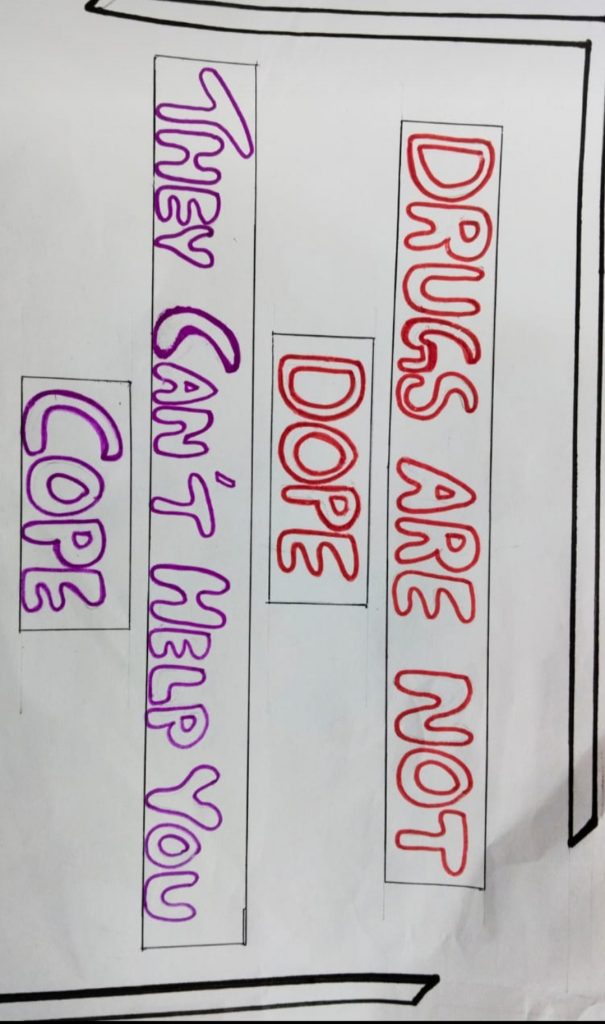 DRUGS ARE NOT
DOPE
THEY CAN'T HELP YOU
COPE